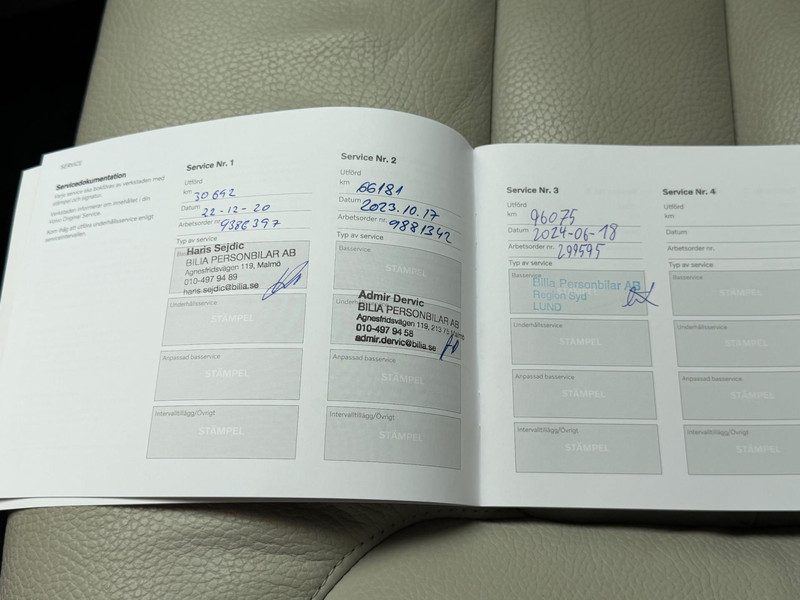 SERVICE
Servicedokumentation
Varje service ska bekräftas av verkstaden med
stämpel och signatur.
Verkstaden informerar om innehållet i din
Volvo Original Service.
Kom ihåg att utföra underhållsservice enligt
serviceintervallen.
Service Nr. 1
Utförd
km 30 692
Datum 22-12-20
Arbetsorder nr. 9386397
Typ av service
Basservice
Haris Sejdic
BILIA PERSONBILAR AB
Agnesfridsvägen 119, Malmö
010-497 94 89
haris.sejdic@bilia.se
Underhållsservice
STÄMPEL
Anpassad basservice
STÄMPEL
Intervalltillägg/Övrigt
STÄMPEL
Service Nr. 2
Utförd
km 66181
Datum 2023.10.17
Arbetsorder nr. 9881342
Typ av service
Basservice
STÄMPEL
Admir Dervic
BILIA PERSONBILAR AB
Agnesfridsvägen 119, 213 75 Malmö
010-497 94 58
admir.dervic@bilia.se
Anpassad basservice
STÄMPEL
Intervalltillägg/Övrigt
STÄMPEL
Service Nr. 3
Utförd
km 96075
Datum 2024-06-18
Arbetsorder nr. 299595
Typ av service
Basservice
Bilia Personbilar AB
Region Syd
LUND
Underhållsservice
STÄMPEL
Anpassad basservice
STÄMPEL
Intervalltillägg/Övrigt
STÄMPEL
Service Nr. 4
Utförd
km
Datum
Arbetsorder nr.
Typ av service
Basservice
STÄMPEL
Underhållsservice
STÄMPEL
Anpassad basservice
STÄMPEL
Intervalltillägg/Övrigt
STÄMPEL